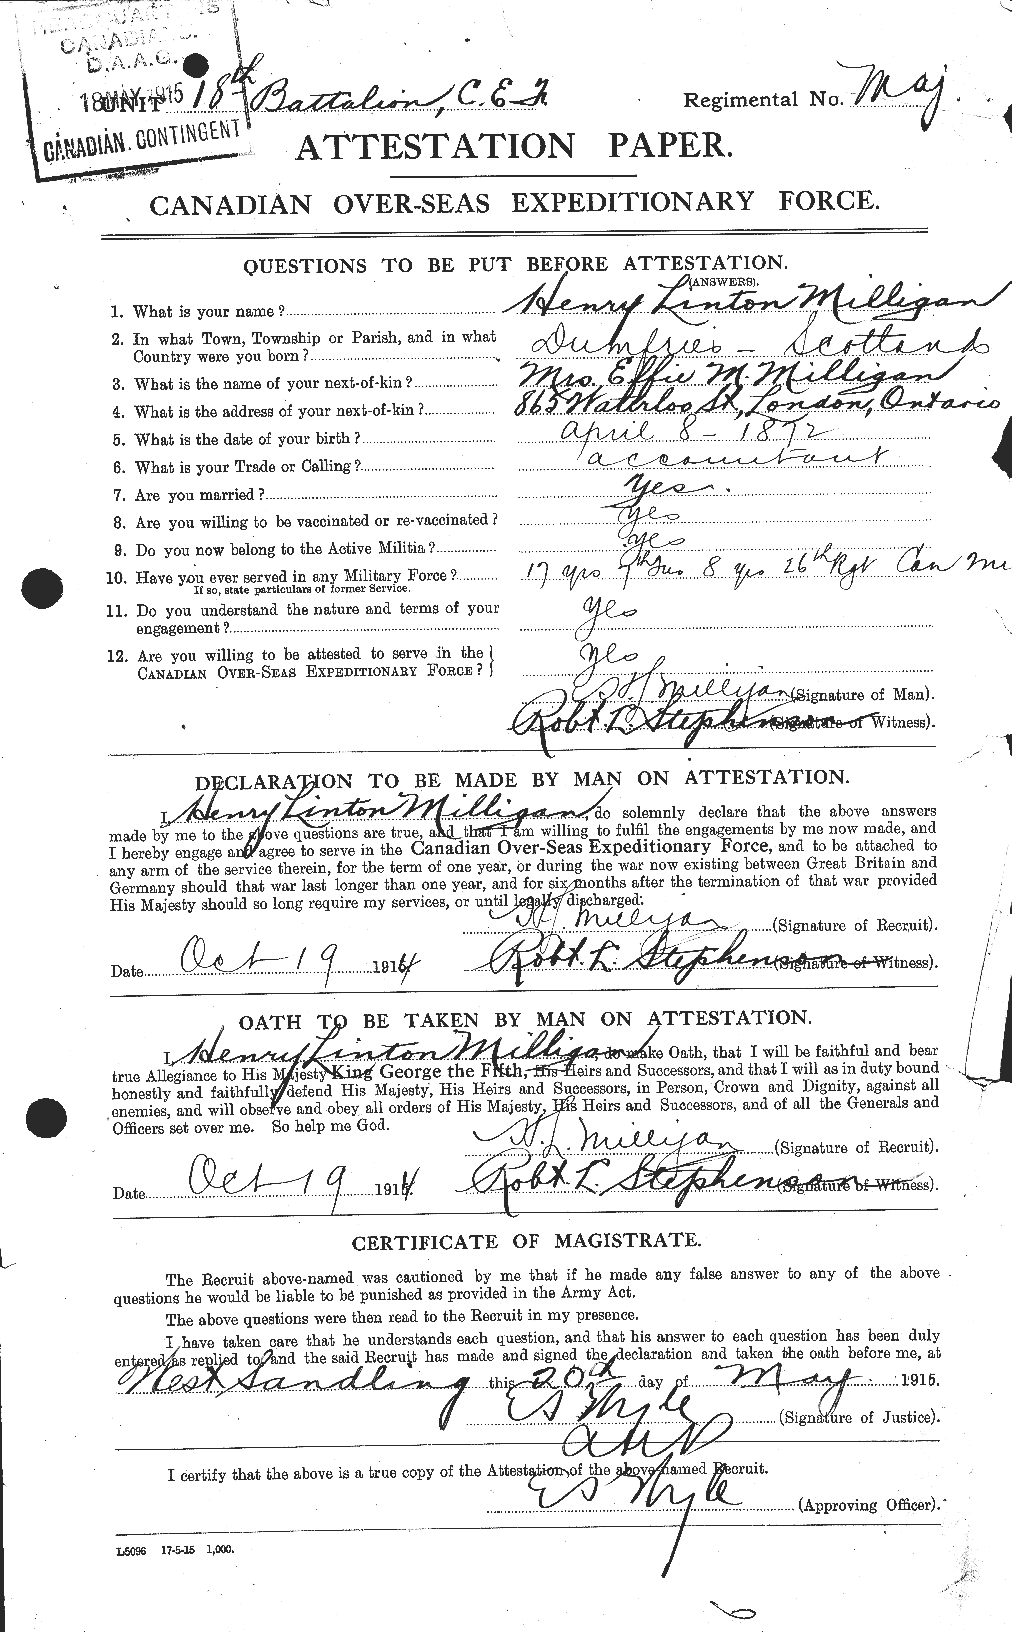 CANADIAN
D.A.A.G.
18 MAY 1915
CANADIAN. CONTINGENT
UNIT 18th Battalion, C.E.F.
Regimental No. Maj.
ATTESTATION PAPER.
CANADIAN OVER-SEAS EXPEDITIONARY FORCE.
QUESTIONS TO BE PUT BEFORE ATTESTATION.
(ANSWERS).
1. What is your name? Henry Linton Milligan
2. In what Town, Township or Parish, and in what
Country were you born? Dumfries - Scotland
3. What is the name of your next-of-kin? Mrs. Effie M. Milligan
4. What is the address of your next-of-kin? 865 Waterloo St., London, Ontario
5. What is the date of your birth? april 8 - 1872
6. What is your Trade or Calling? accountant
7. Are you married? Yes.
8. Are you willing to be vaccinated or re-vaccinated? yes
9. Do you now belong to the Active Militia? yes
10. Have you ever served in any Military Force? 17 yrs 7th Fus 8 yrs 26th Rgt Can
If so, state particulars of former Service.
11. Do you understand the nature and terms of your
engagement? yes
12. Are you willing to be attested to serve in the
CANADIAN OVER-SEAS EXPEDITIONARY FORCE? yes
Milligan (Signature of Man).
Robt. L. Stephenson (Signature of Witness).
DECLARATION TO BE MADE BY MAN ON ATTESTATION.
I, Henry Linton Milligan, do solemnly declare that the above answers
made by me to the above questions are true, and that I am willing to fulfil the engagements by me now made, and
I hereby engage and agree to serve in the Canadian Over-Seas Expeditionary Force, and to be attached to
any arm of the service therein, for the term of one year, or during the war now existing between Great Britain and
Germany should that war last longer than one year, and for six months after the termination of that war provided
His Majesty should so long require my services, or until legally discharged:
H L Milligan (Signature of Recruit).
Date Oct 19 1914 Robt. L. Stephenson (Signature of Witness).
OATH TO BE TAKEN BY MAN ON ATTESTATION.
I, Henry Linton Milligan, do make Oath, that I will be faithful and bear
true Allegiance to His Majesty King George the Fifth, His Heirs and Successors, and that I will as in duty bound
honestly and faithfully defend His Majesty, His Heirs and Successors, in Person, Crown and Dignity, against all
enemies, and will observe and obey all orders of His Majesty, His Heirs and Successors, and of all the Generals and
Officers set over me. So help me God.
H. L. Milligan (Signature of Recruit).
Date Oct 19 1914. Robt. L. Stephenson (Signature of Witness).
CERTIFICATE OF MAGISTRATE.
The Recruit above-named was cautioned by me that if he made any false answer to any of the above
questions he would be liable to be punished as provided in the Army Act.
The above questions were then read to the Recruit in my presence.
I have taken care that he understands each question, and that his answer to each question has been duly
entered as replied to, and the said Recruit has made and signed the declaration and taken the oath before me, at
West Sandling this 20th day of May 1915.
(Signature of Justice).
I certify that the above is a true copy of the Attestation of the above-named Recruit.
(Approving Officer).
L5096 17-5-15 1,000.